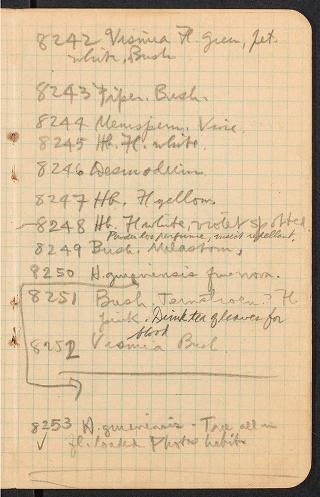 8242 Vismia Fl. green, pet.
white, Bush
8243 Piper. Bush.
8244 Menisperm. Vine.
8245 Hb. Fl. white.
8246 Desmodium.
8247 Hb. Fl yellow.
8248 Hb. Fl white, violet spotted
Powder perfume, insect repellant,
8249 Bush. Melastom.
8250 H. guianensis
8251 Bush, Ternstroem.? Fl
pink. Drink tea leaves for
blood
8252 Vismia Bush.
8253 H. guianensis - Tree all in
fl. loaded Photos habit